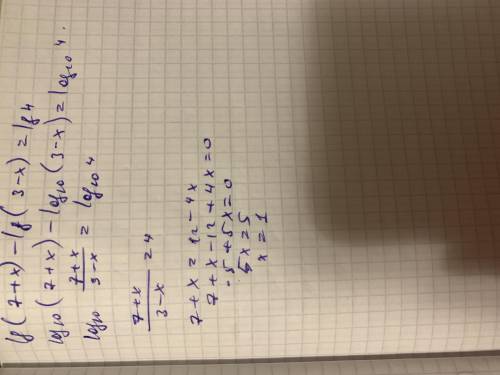 lg(7+x) - lg(3-x) = lg4
log₁₀(7+x) - log₁₀(3-x) = log₁₀4.
log₁₀ (7+x)/(3-x) = log₁₀4
(7+x)/(3-x) = 4
7+x = 12-4x
7+x-12+4x=0
-5+5x=0
5x=5
x=1